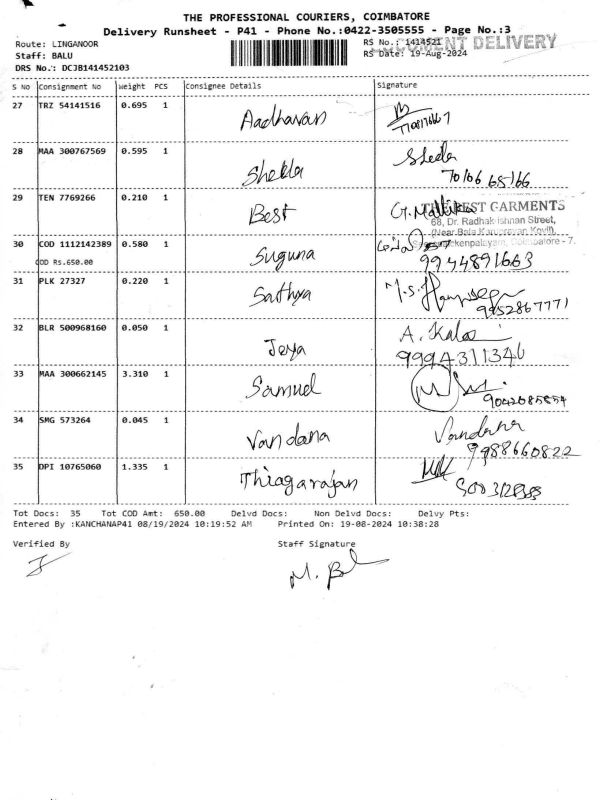 THE PROFESSIONAL COURIERS, COIMBATORE
Delivery Runsheet - P41 - Phone No.:0422-3505555 - Page No.:3
Route: LINGANOOR RS No.: 1414521 DOCUMENT DELIVERY
Staff: BALU RS Date: 19-Aug-2024
DRS No.: DCJB141452103
S No Consignment No Weight PCS Consignee Details Signature
27 TRZ 54141516 0.695 1 Aadhavan
28 MAA 300767569 0.595 1 Shekla Sheela
70106 65166
29 TEN 7769266 0.210 1 Best G. Mallika THE BEST GARMENTS
68, Dr. Radhakrishnan Street,
(Near Bala Karupravan Kovil),
30 COD 1112142389 0.580 1 Suguna Coimbatore - 7.
COD Rs.650.00 9944891663
31 PLK 27327 0.220 1 Sathya M.S.
9952867771
32 BLR 500968160 0.050 1 Jeya A. Kala
9994311346
33 MAA 300662145 3.310 1 Samuel
9042085854
34 SMG 573264 0.045 1 Vandana Vandana
9988660822
35 DPI 10765060 1.335 1 Thiagarajan
Tot Docs: 35 Tot COD Amt: 650.00 Delvd Docs: Non Delvd Docs: Delvy Pts:
Entered By :KANCHANAP41 08/19/2024 10:19:52 AM Printed On: 19-08-2024 10:38:28
Verified By Staff Signature
M. Bal